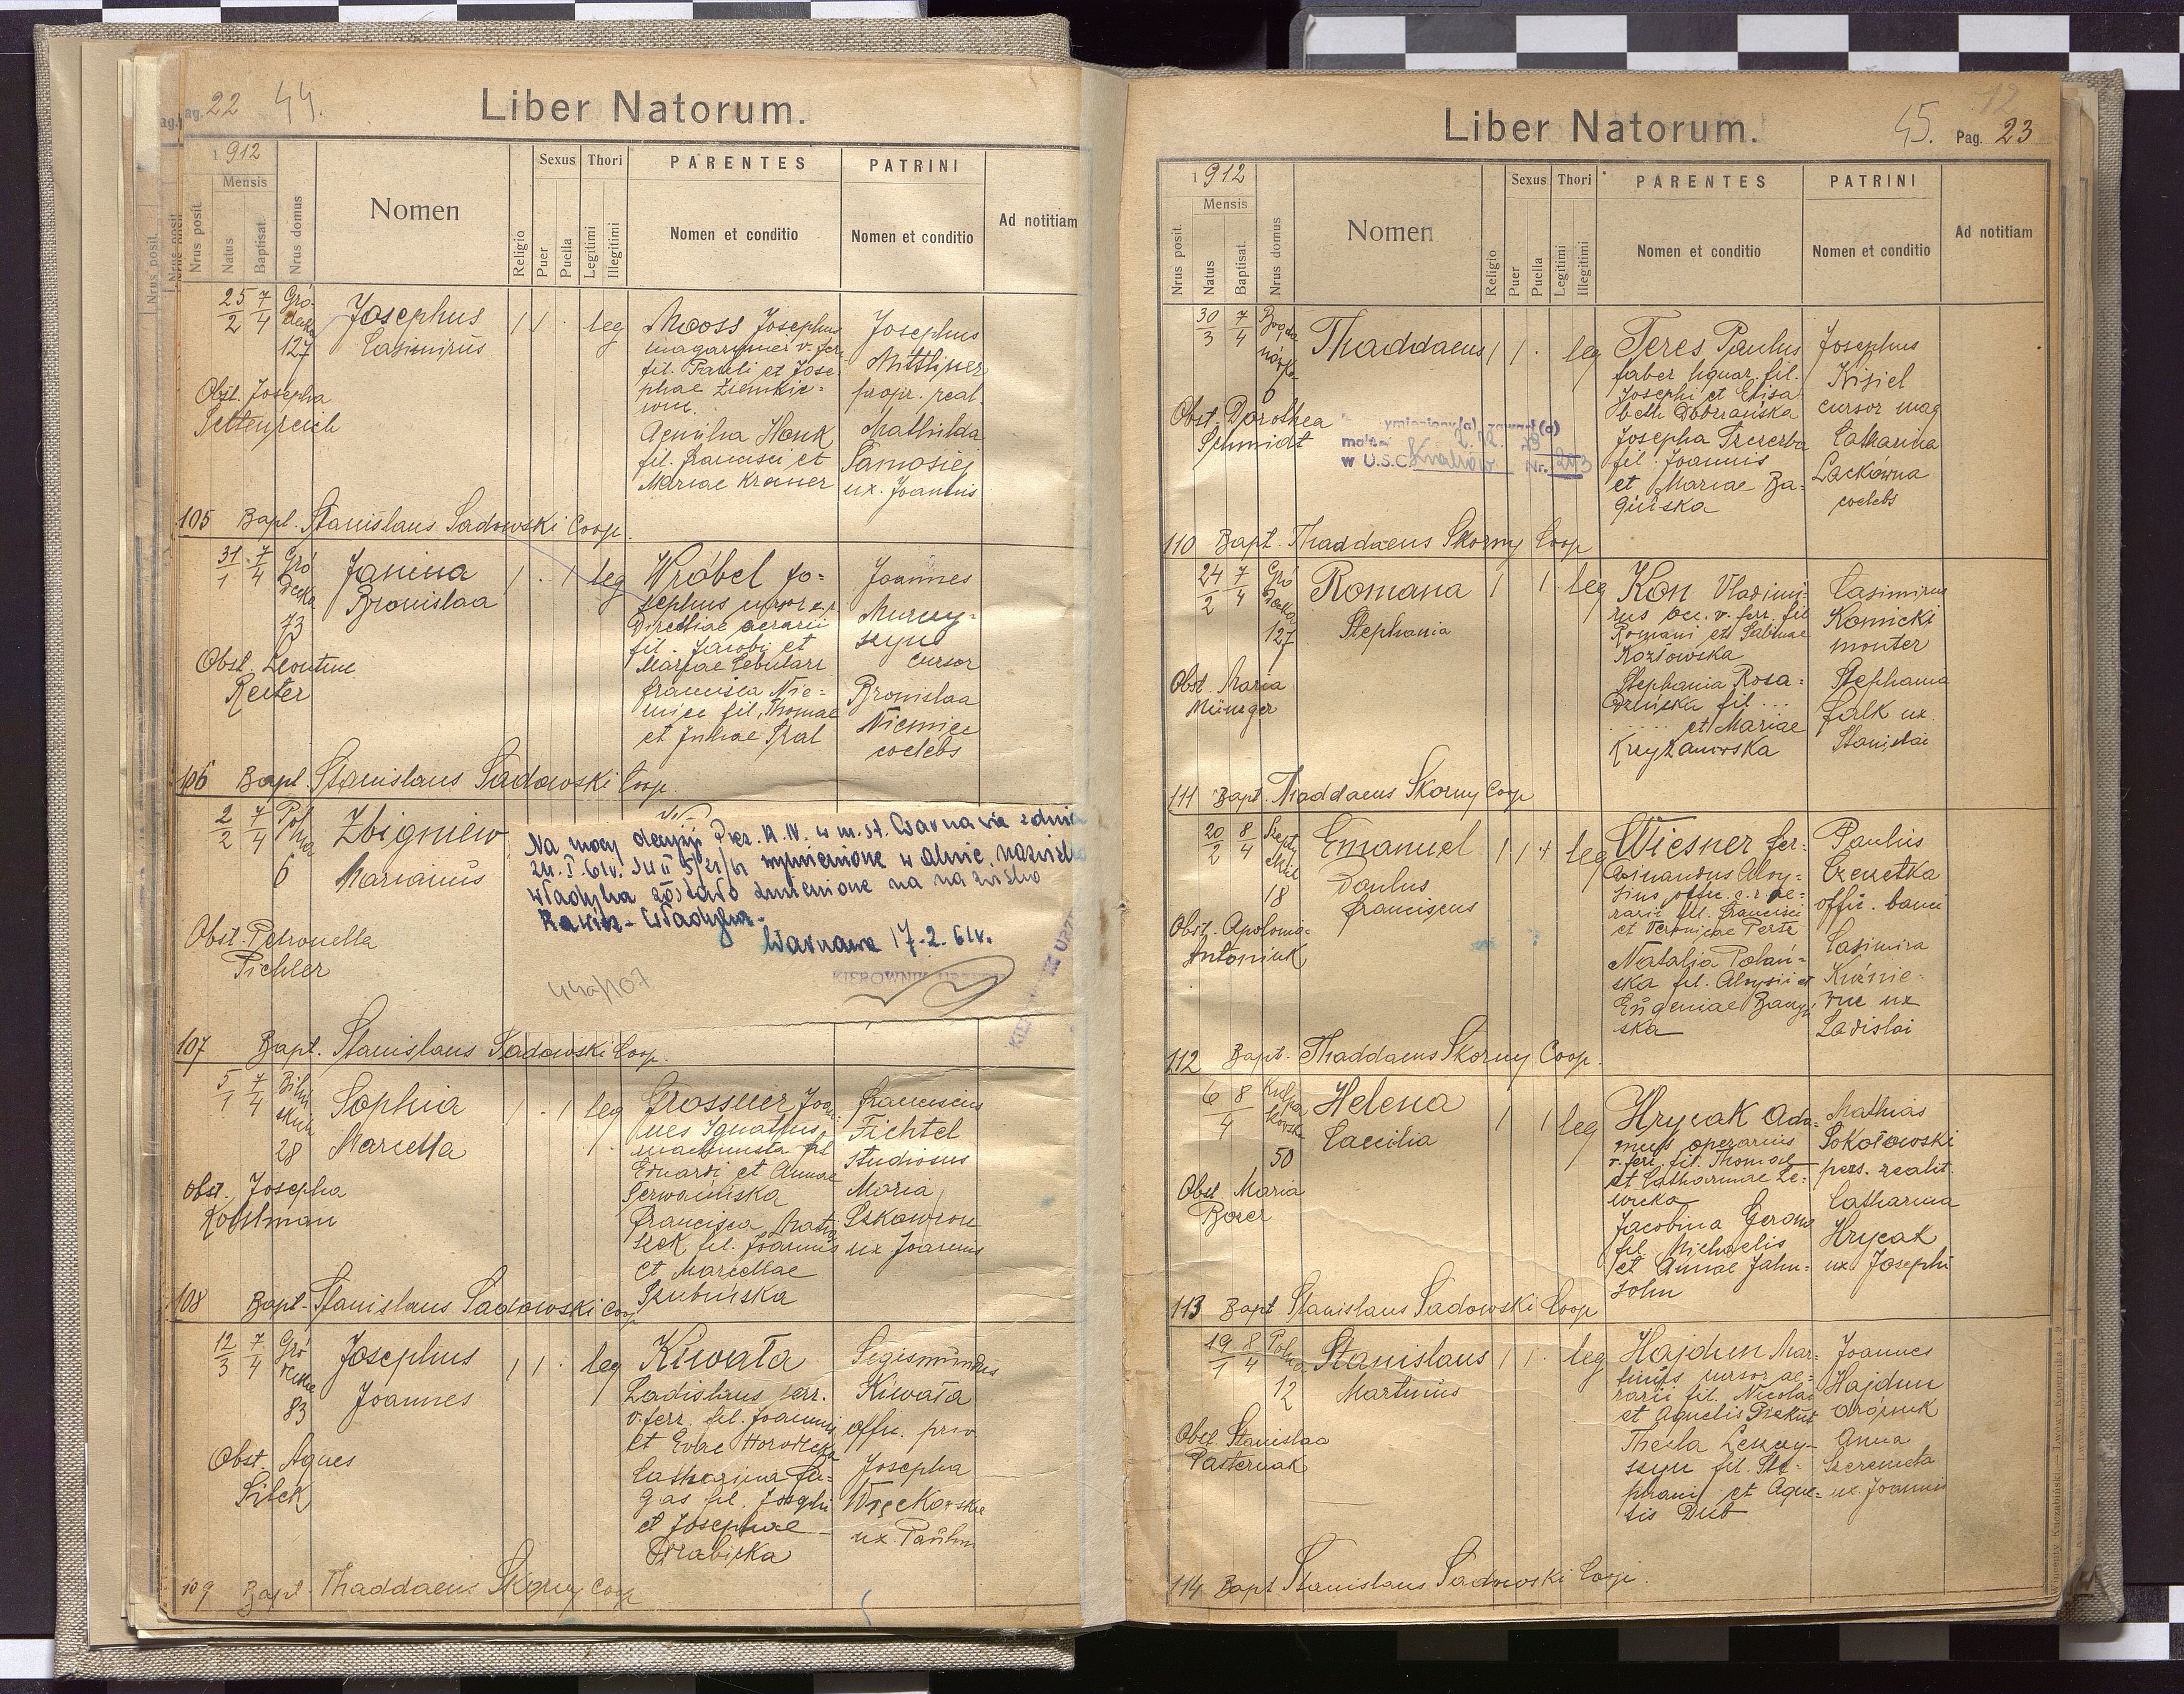 Pag. 22 44.
Liber Natorum.
1912
Mensis
Nrus posit.
Natus
Baptisat.
Nrus domus
Nomen
Religio
Sexus
Puer
Puella
Thori
Legitimi
Illegitimi
PARENTES
Nomen et conditio
PATRINI
Nomen et conditio
Ad notitiam
25/2 7/4 Gródecka 127
Josephus
Casimirus
1 1 . leg
Mooss Josephus
magazynier v. ferr.
fil. Pauli et Jose
phae
Aemilia Honk
fil. Francisci et
Mariae Kramer
Josephus
propr. real.
Mathilda
ux. Joannis
Obst. Josepha
105 Bapt. Stanislaus Sadowski Coop.
31/1 7/4 Gródecka 73
Janina
Bronislaa
1 . 1 leg
Wróbel Jo=
sephus cursor c. r.
aerarii
fil. Jacobi et
Mariae
Francisca Nie=
miec fil. Thomae
et Juliae Kral
Joannes
cursor
Bronislaa
Niemiec
coelebs
Obst. Leontine
Reiter
106 Bapt. Stanislaus Sadowski Coop.
2/2 7/4 Polna 6
Zbigniew
Marianus
Na mocy decyzji Prez. R. N. w m. st. Warszawie z dnia
wymienione w akcie, nazwisko
Władyka zostało zmienione na nazwisko
Rawicz-Władyka.
Warszawa 17.2.61r.
44a/107
Obst. Petronella
Pichler
107 Bapt. Stanislaus Sadowski Coop.
5/1 7/4 28
Sophia
Marcella
1 . 1 leg
Grossner Joan
nes Ignatius
machinista fil
Eduardi et Annae
Francisca
fil. Joannis
et Marcellae
Franciscus
Fichtel
studiosus
Maria
Skowron
ux Joannis
Obst. Josepha
108 Bapt. Stanislaus Sadowski Coop.
12/3 7/4 Gródecka 83
Josephus
Joannes
1 1 . leg
Kiwała
Ladislaus serr.
v. ferr. fil. Joannis
et Evae Horodecka
Catharina Fu=
gas fil. Josephi
et Josephae
Grabicka
Sigismundus
Kiwała
offic. priv
Josepha
Więckowska
ux. Paulin
Obst. Agnes
109 Bapt. Thaddaeus Skorny Coop
Liber Natorum.
45. Pag. 23
12
1912
Mensis
Nrus posit.
Natus
Baptisat.
Nrus domus
Nomen
Religio
Sexus
Puer
Puella
Thori
Legitimi
Illegitimi
PARENTES
Nomen et conditio
PATRINI
Nomen et conditio
Ad notitiam
30/3 7/4 Bogdanówka 6
Thaddaeus
1 1 . leg
Teres Paulus
faber lignar. fil.
Josephi et Elisa
beth Dobrzańska
Josepha Szczerba
fil. Joannis
et Mariae Ba=
gińska
Josephus
Kisiel
cursor mag
Catharina
Lackówna
coelebs
Obst. Dorothea
Schmidt
w U.S.C. Kraków Nr. 293
110 Bapt. Thaddaeus Skorny Coop
24/2 7/4 Gródecka 127
Romana
Stephania
1 1 leg
Kon Vladimi=
rus occ. v. ferr. fil
Romani et Sabinae
Kozłowska
Stephania Rosa=
dzińska fil ...
... et Mariae
Krzyżanowska
Casimirus
Komicki
monter
Stephania
Falk ux.
Stanislai
Obst. Maria
111 Bapt. Thaddaeus Skorny Coop
20/2 8/4 18
Emanuel
Paulus
Franciscus
1 1 + leg
Wiesner Fer=
dinandus Aloy=
sius offic. c. r. ae=
rarii fil. Francisci
et Veronicae
Natalia Polań=
ska fil. Aloysii et
Eugeniae
Paulus
offic. banci
Casimira
ux
Ladislai
Obst. Apolonia
Antoniuk
112 Bapt. Thaddaeus Skorny Coop.
6/4 8 50
Helena
Caecilia
1 1 leg
Hrycak Ada=
mus operarius
v. ferr. fil. Thomae
et Catharinae Le=
wicka
Jacobina
fil. Michaelis
et Annae Jahn=
sohn
Mathias
Sokołowski
pors. realit.
Catharina
Hrycak
ux Josephi
Obst. Maria
113 Bapt Stanislaus Sadowski Coop
19/1 8/4 Polna 12
Stanislaus
Martinus
1 1 . leg
Hajdun Mar=
tinus cursor ae=
rarii fil. Nicolai
et Agnetis
Thecla Leszczy=
szyn fil. Ste=
phani et Agne=
tis Dub
Joannes
Hajdun
Anna
Szeremeta
ux. Joannis
Obst. Stanislaa
Pasternak
114 Bapt Stanislaus Sadowski Coop.